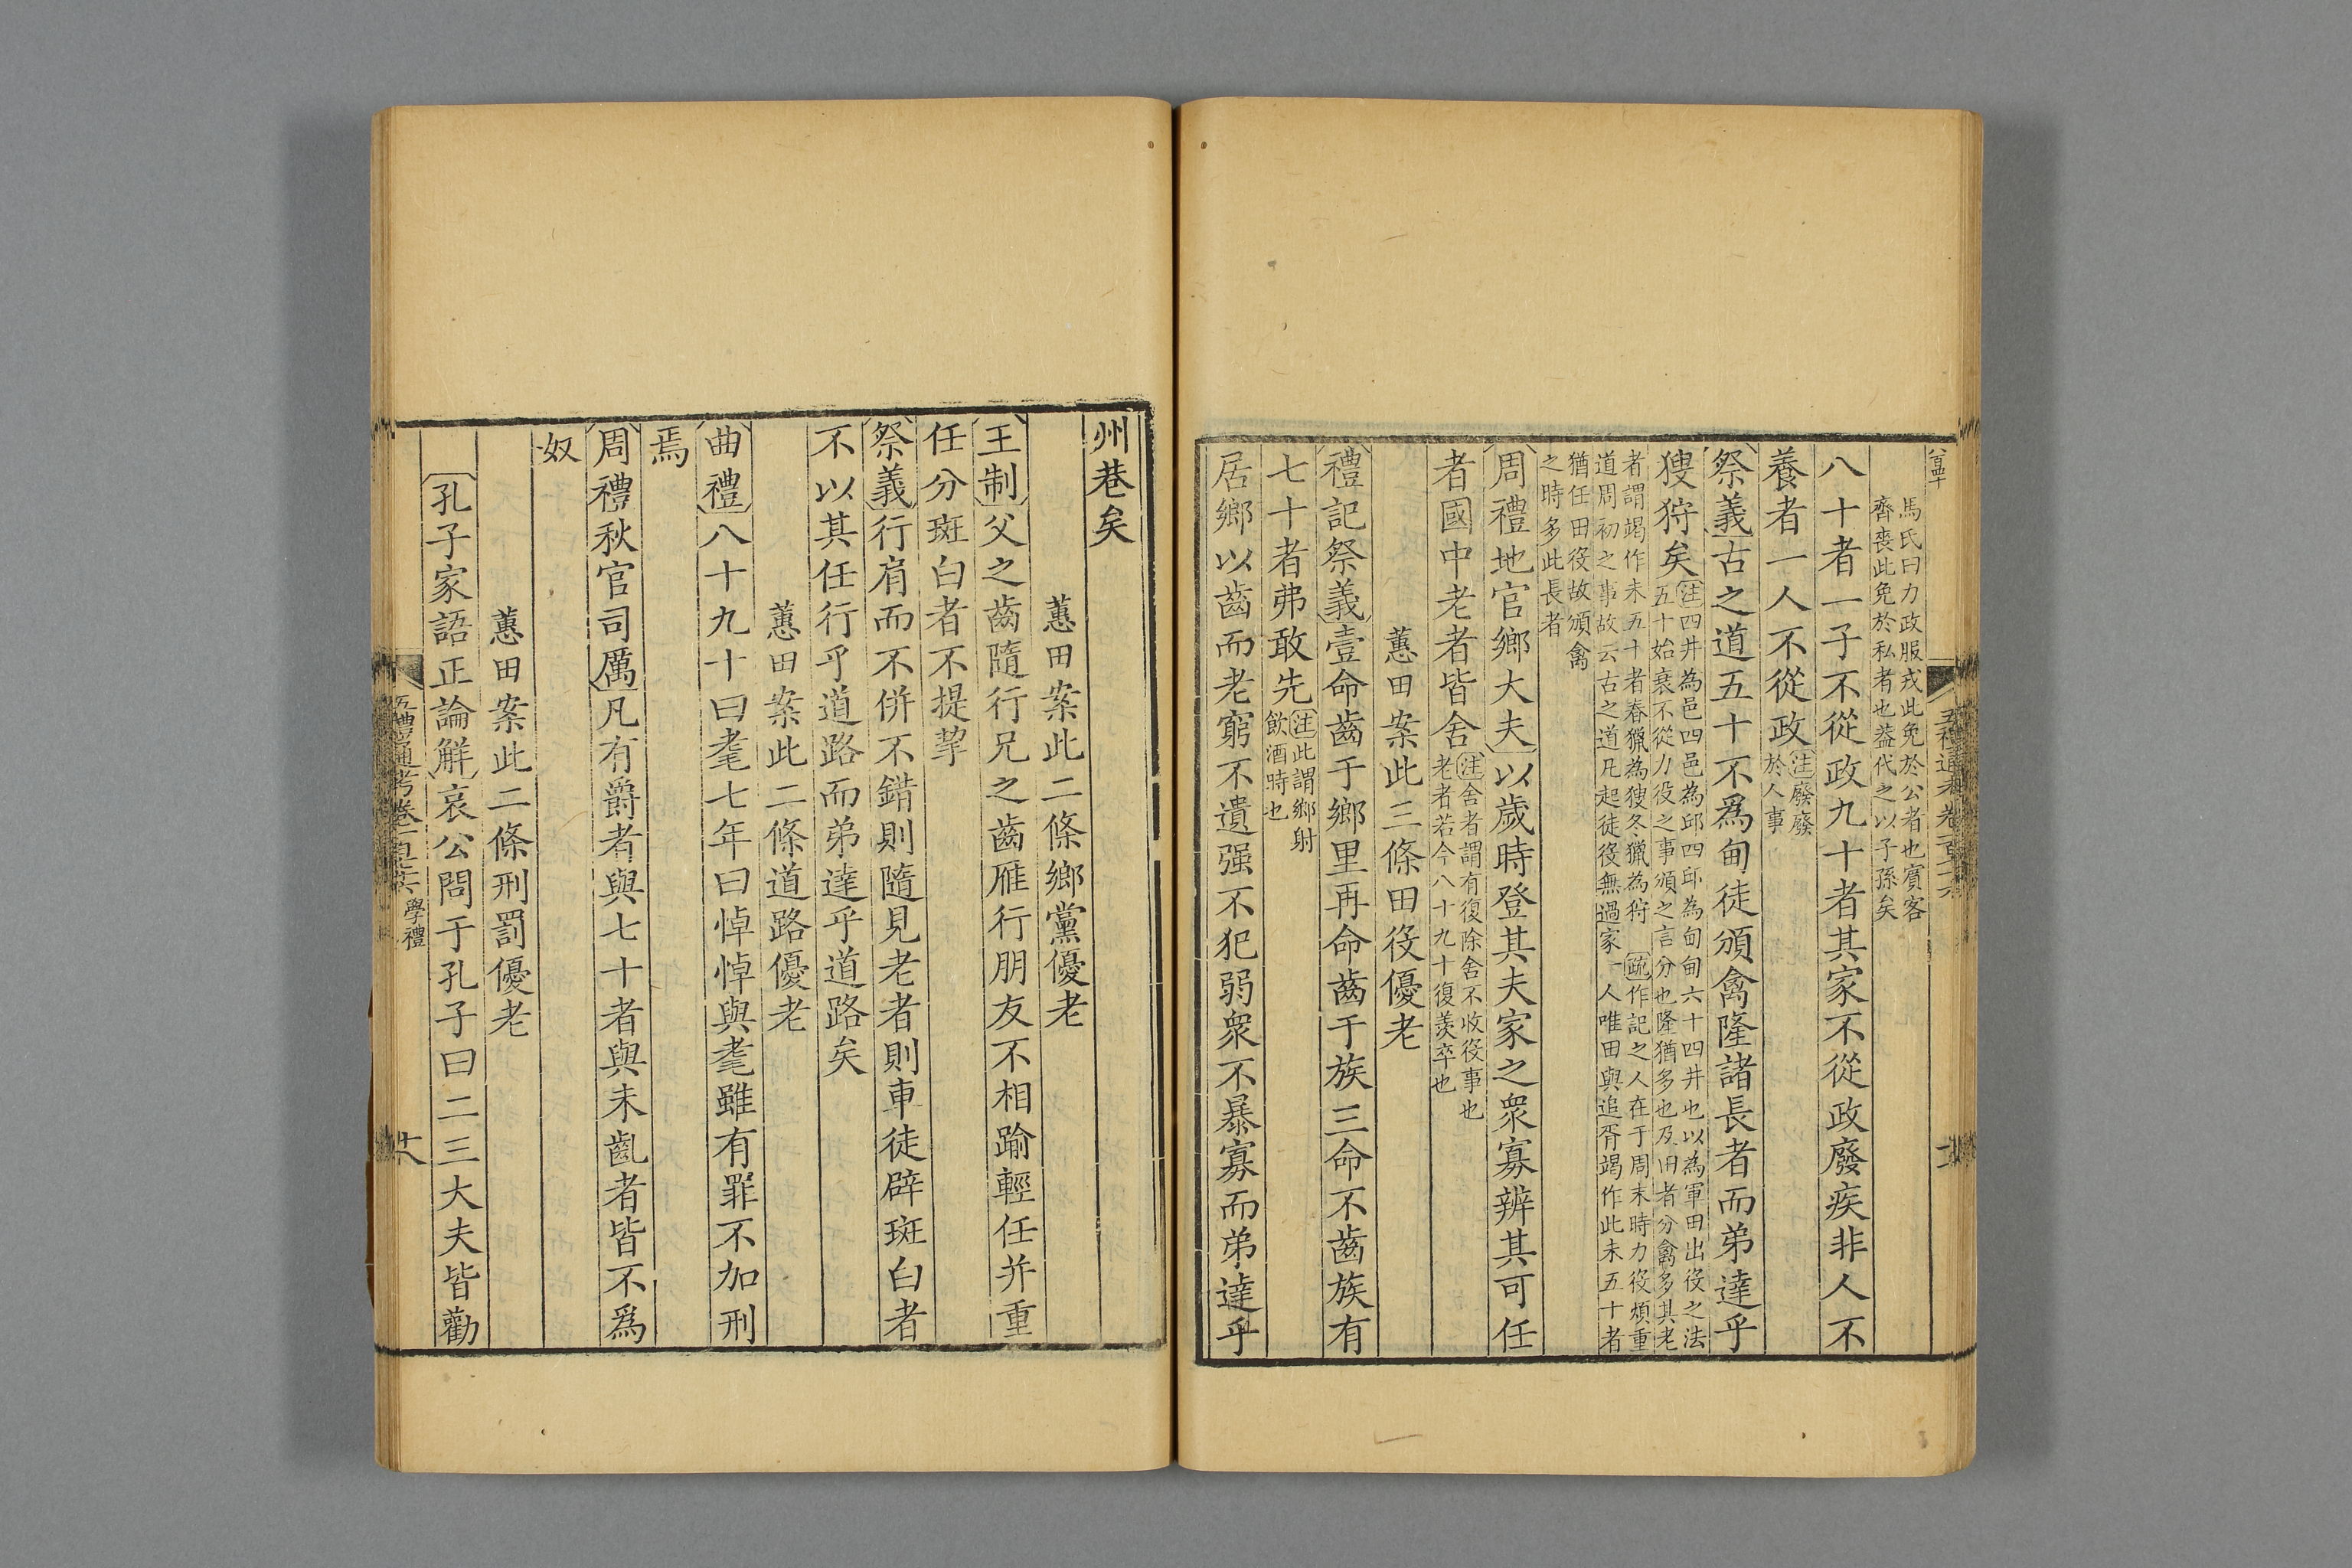 馬氏曰力政服戎此免於公者也賓客
齊喪此免於私者也蓋代之以子孫矣
八十者一子不從政九十者其家不從政廢疾非人不
養者一人不從政注廢廢
於人事
祭義古之道五十不爲甸徒頒禽隆諸長者而弟達乎
獀狩矣注四井為邑四邑為邱四邱為甸甸六十四井也以為軍田出役之法
五十始衰不從力役之事頒之言分也隆猶多也及田者分禽多其老
者謂竭作未五十者春獵為獀冬獵為狩 疏作記之人在于周末時力役煩重
道周初之事故云古之道凡起徒役無過家一人唯田與追胥竭作此未五十者
猶任田役故頒禽
之時多此長者
周禮地官鄉大夫以歲時登其夫家之眾寡辨其可任
者國中老者皆舍注舍者謂有復除舍不收役事也
老者若今八十九十復羨卒也
蕙田案此三條田役優老
禮記祭義壹命齒于鄉里再命齒于族三命不齒族有
七十者弗敢先注此謂鄉射
飲酒時也
居鄉以齒而老窮不遺强不犯弱眾不暴寡而弟達乎
五禮通考卷一百七十六 學禮
州巷矣
蕙田案此二條鄉黨優老
王制父之齒隨行兄之齒雁行朋友不相踰輕任并重
任分斑白者不提挈
祭義行肩而不併不錯則隨見老者則車徒辟斑白者
不以其任行乎道路而弟達乎道路矣
蕙田案此二條道路優老
曲禮八十九十曰耄七年曰悼悼與耄雖有罪不加刑
焉
周禮秋官司厲凡有爵者與七十者與未齓者皆不爲
奴
蕙田案此二條刑罰優老
孔子家語正論解哀公問于孔子曰二三大夫皆勸